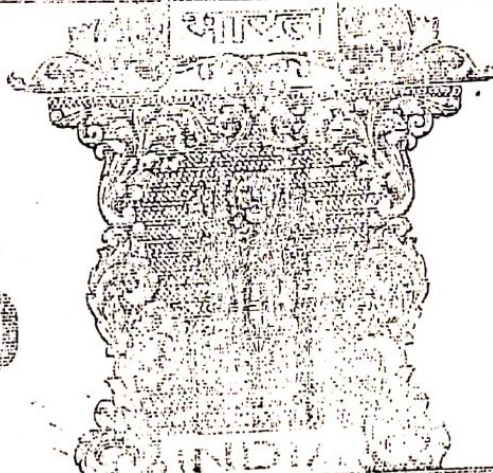 भारत
INDIA